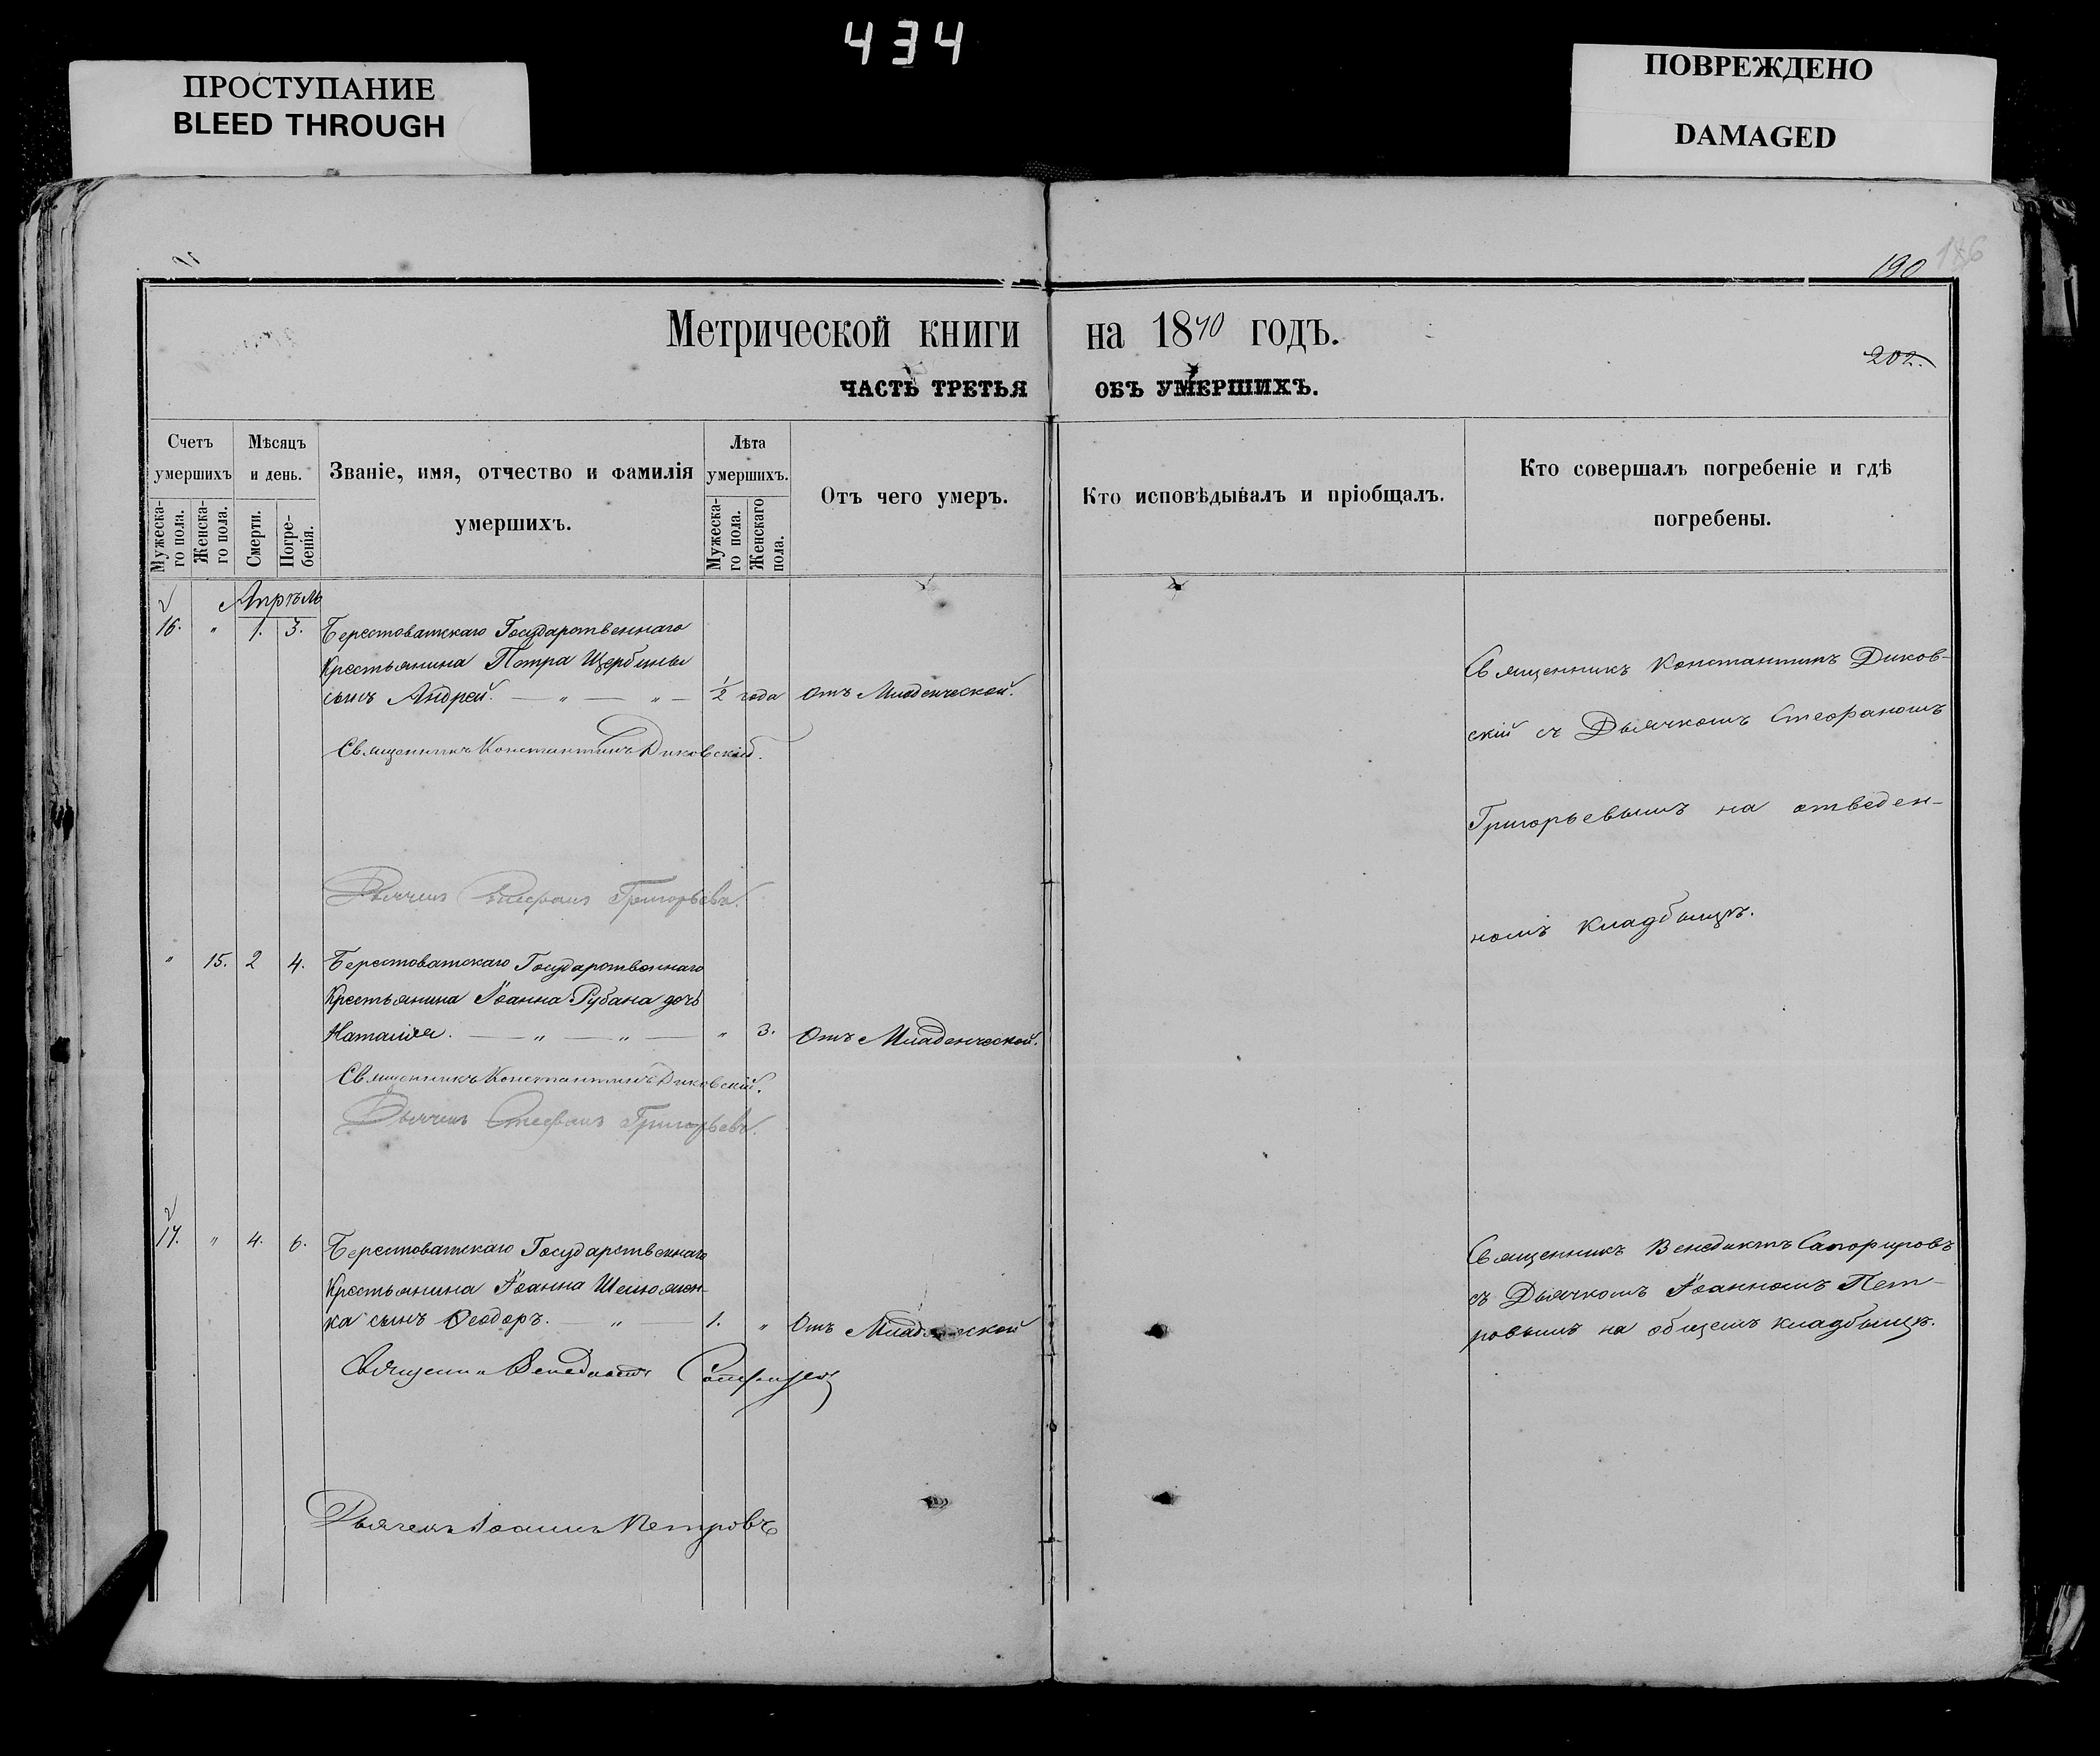 434
ПРОСТУПАНИЕ
BLEED THROUGH
ПОВРЕЖДЕНО
DAMAGED
190
186
Метрической книги на 1870 годъ.
202.
ЧАСТЬ ТРЕТЬЯ ОБЪ УМЕРШИХЪ.
Счетъ умершихъ
Мужеска-го пола.
Женска-го пола.
Мѣсяцъ и день.
Смерти.
Погре-бенія.
Званіе, имя, отчество и фамилія умершихъ.
Лѣта умершихъ.
Мужеска-го пола.
Женскаго пола.
Отъ чего умеръ.
Кто исповѣдывалъ и пріобщалъ.
Кто совершалъ погребеніе и гдѣ погребены.
Апрѣль
16. " 1. 3. Берестоватскаго Государственнаго
Крестьянина Петра Щербины
сынъ Андрей. — " — " — 1/2 года Отъ Младенческой.
Священникъ Константинъ Диковскій.
Дьячекъ Стефанъ Григорьевъ.
Священникъ Константинъ Диков-
скій съ Дьячкомъ Стефаномъ
Григорьевымъ на отведен-
номъ кладбищѣ.
" 15. 2 4. Берестоватскаго Государственнаго
Крестьянина Іоанна Рубана дочь
Наталія. — " — " — " 3. Отъ Младенческой.
Священникъ Константинъ Диковскій.
Дьячекъ Стефанъ Григорьевъ.
17. " 4. 6. Берестоватскаго Государственнаго
Крестьянина Іоанна
ка сынъ Ѳеодоръ. — " — 1. " Отъ Младенческой
Венедиктъ
Дьячекъ Іоаннъ Петровъ
Священникъ Венедиктъ
съ Дьячкомъ Іоанномъ Пет-
ровымъ на общемъ кладбищѣ.